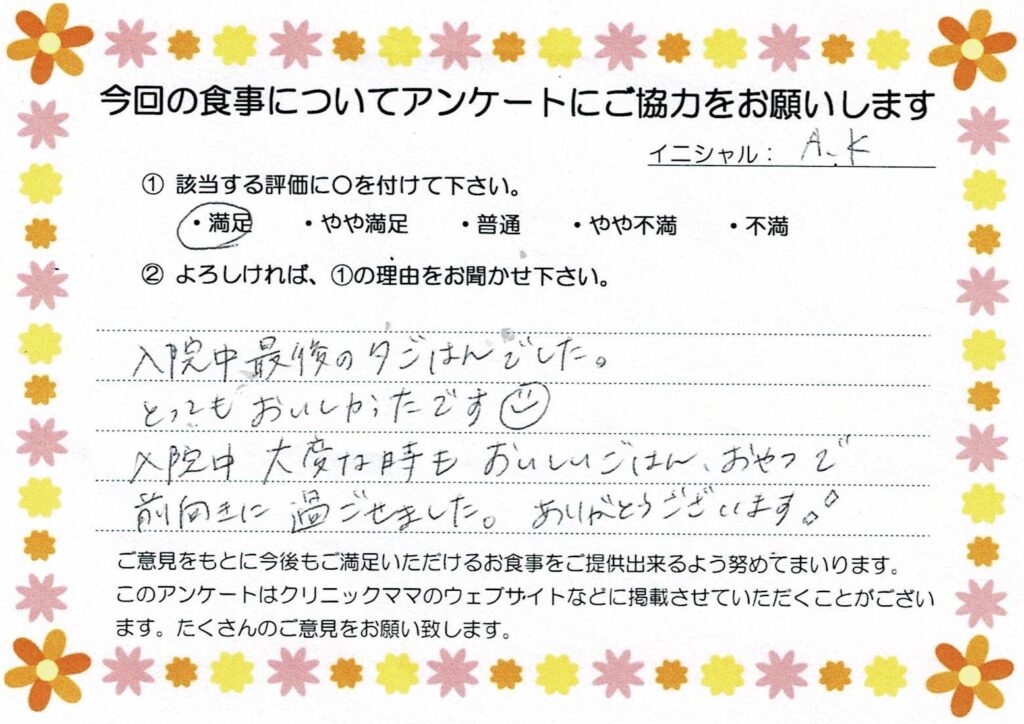 今回の食事についてアンケートにご協力をお願いします
イニシャル： A.K
① 該当する評価に○を付けて下さい。
・満足 ・やや満足 ・普通 ・やや不満 ・不満
② よろしければ、①の理由をお聞かせ下さい。
入院中最後の夕ごはんでした。
とってもおいしかったです
入院中 大変な時も おいしいごはん、おやつで
前向きに 過ごせました。 ありがとうございます。
ご意見をもとに今後もご満足いただけるお食事をご提供出来るよう努めてまいります。
このアンケートはクリニックママのウェブサイトなどに掲載させていただくことがござい
ます。たくさんのご意見をお願い致します。